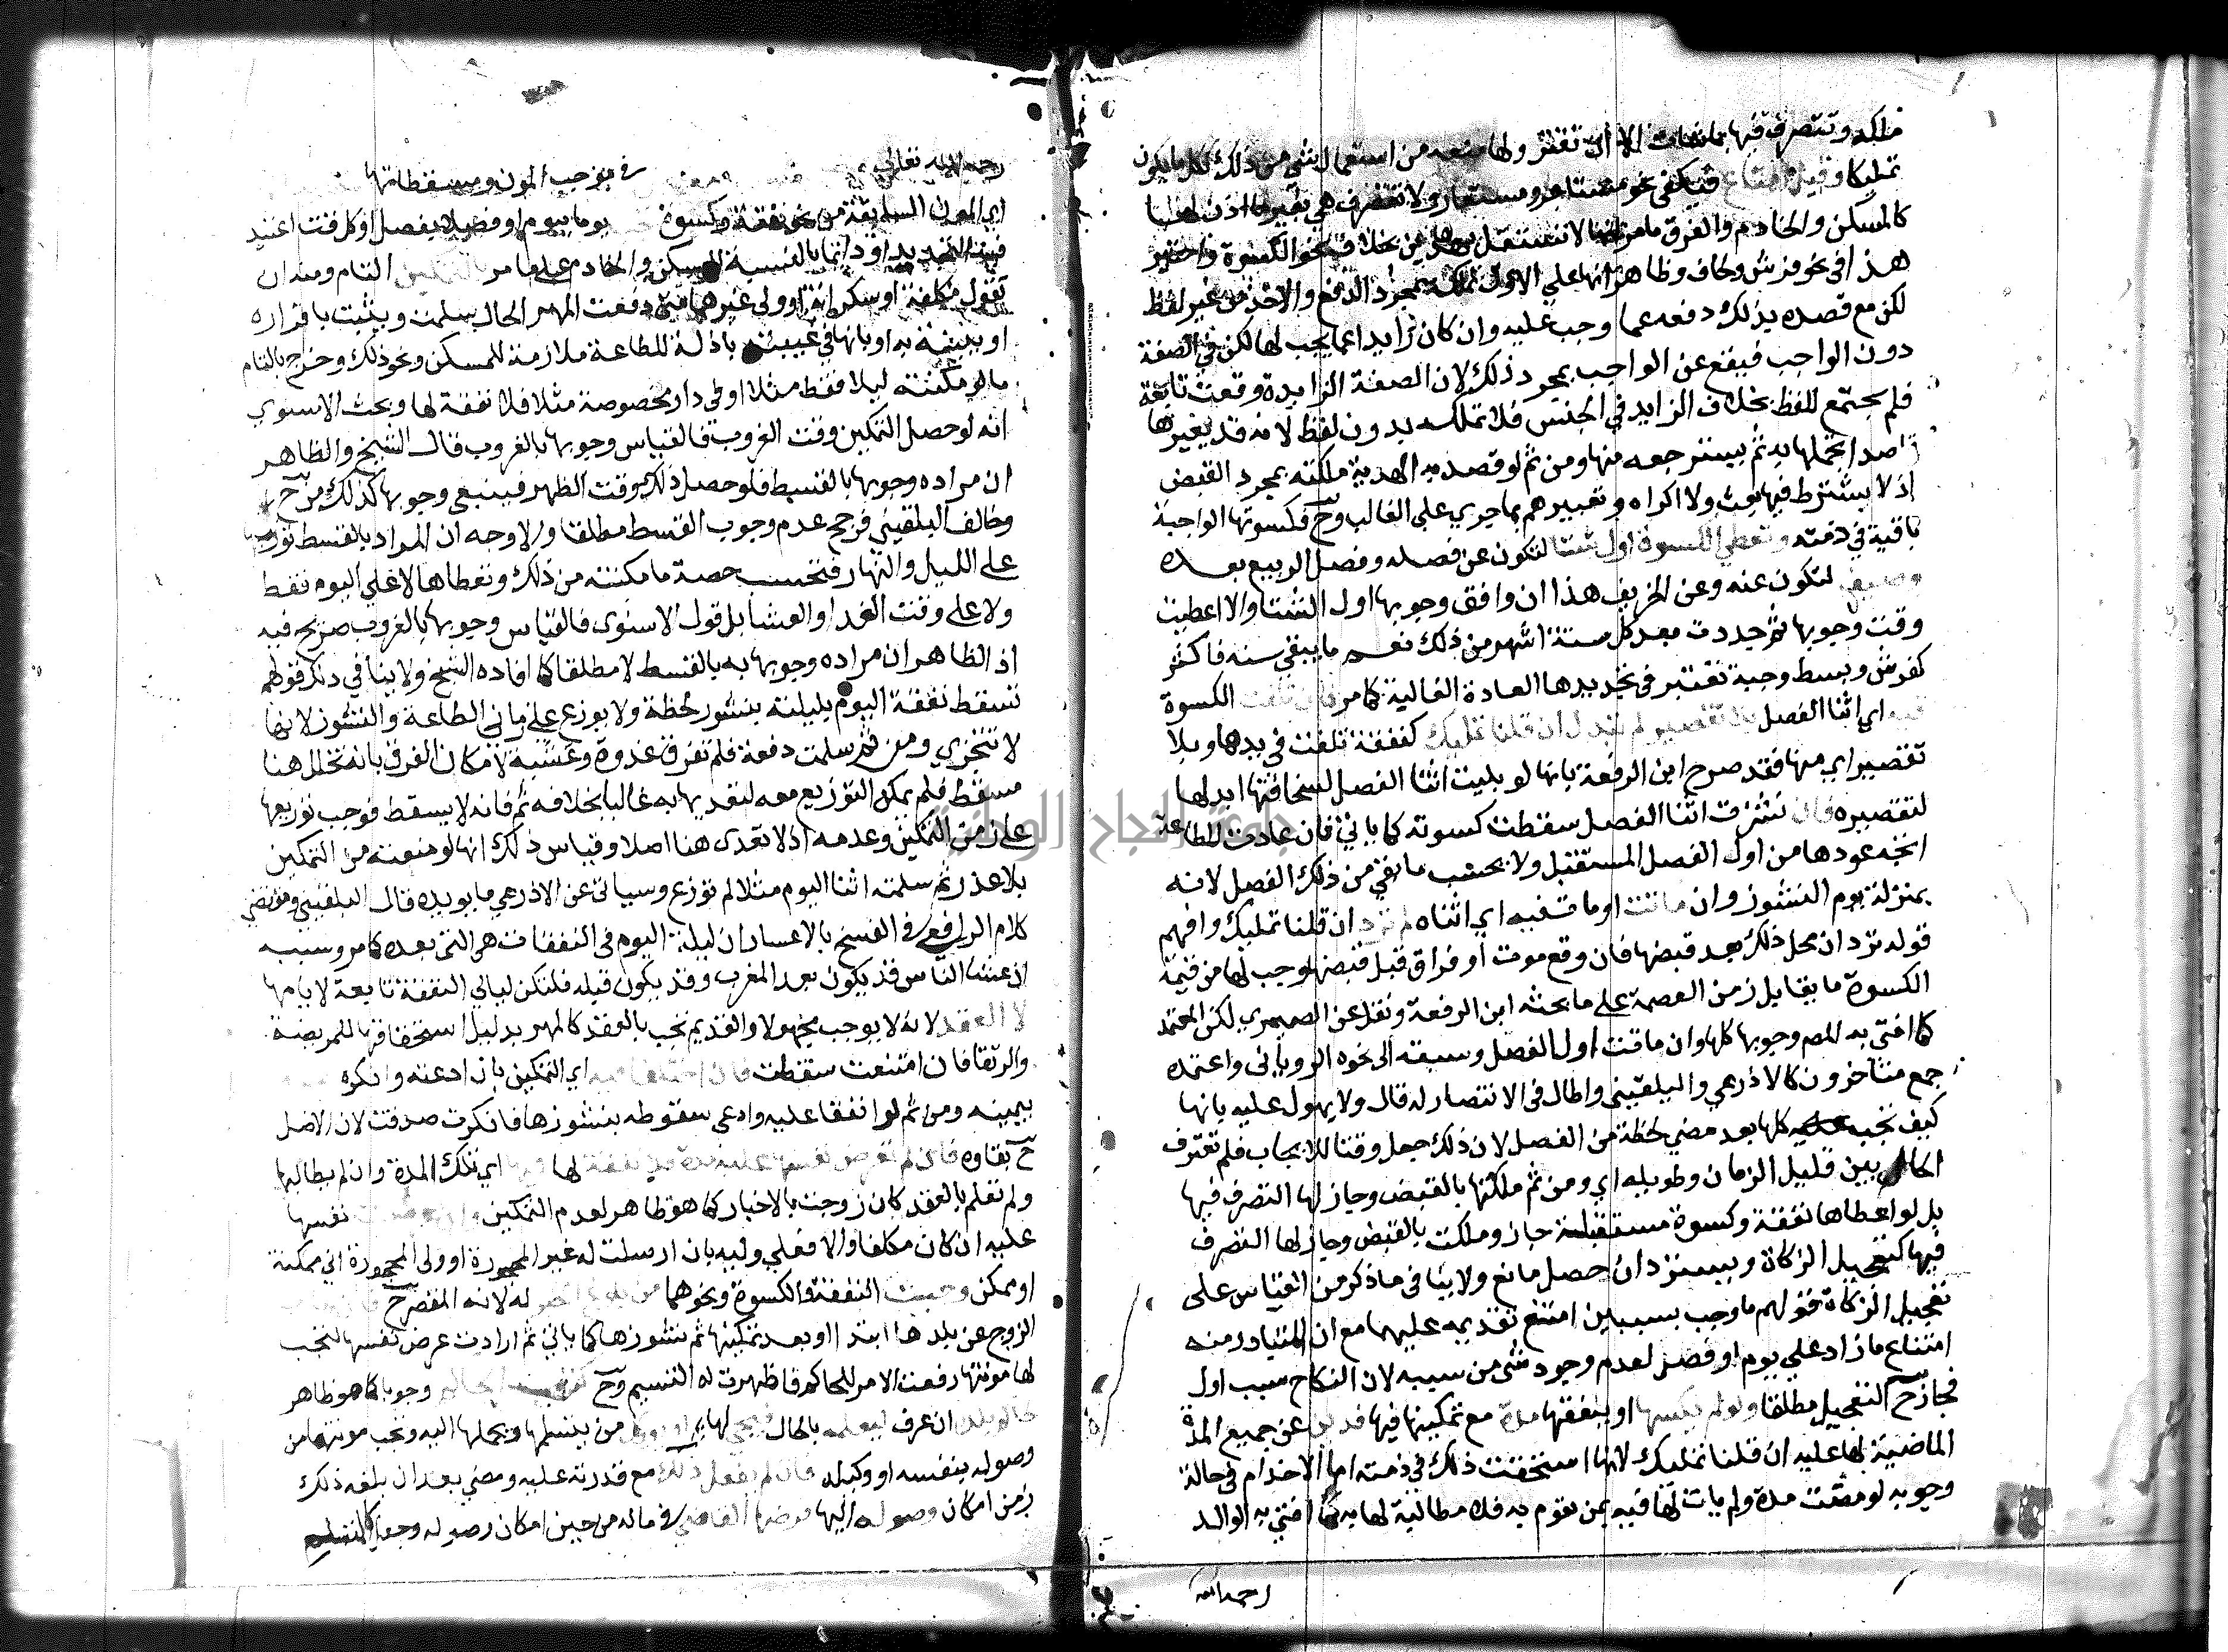 ملكه وتتصرف فيها بما شاءت الا ان تقتر ولها منعه من استعمال شي من ذلك لكل ما يكون
تمليكا وقيل امتاع فيكفى نحو مستاجر ومستعار ولا تتصرف هي بغير ما اذن لها
كالمسكن والخادم والفرق ما مر انها لا تستقل بهذين بخلاف نحو الكسوة واختير
هذا في نحو فرش ولحاف وظاهر انها على الاول تملكه بمجرد الدفع والاخذ من غير لفظ
لكن مع قصده بذلك دفعه عما وجب عليه وان كان زايدا عما يجب لها لكن في الصفة
دون الواجب فيقع عن الواجب بمجرد ذلك لان الصفة الزايدة وقعت تابعة
فلم يحتج للفظ بخلاف الزايد في الجنس فلا تملكه بدون لفظ لانه قد يعيرها
قاصدا تجملها به ثم يسترجعه منها ومن ثم لو قصد به الهدية ملكته بمجرد القبض
اذ لا يشترط فيها بعث ولا اكراه وتعبيرهم بهما جري على الغالب وح فكسوتها الواجبة
باقية في ذمته وتعطي الكسوة اول شتا لتكون عن فصله وفصل الربيع بعده
وصيف لتكون عنه وعن الخريف هذا ان وافق وجوبها اول الشتا والا اعطيت
وقت وجوبها ثم جددت بعد كل ستة اشهر من ذلك نعم ما يبقي سنه فاكثر
كفرش وبسط وجبة تعتبر في تجديدها العادة الغالبة كما مر فان تلفت الكسوة
فيه اي اثنا الفصل بلا تقصير لم تبدل ان قلنا تمليك كنفقة تلفت في يدها وبلا
تقصير اي منها فقد صرح ابن الرفعة بانها لو بليت اثنا الفصل لسخافتها ابدلها
لتقصيره فان نشزت اثنا الفصل سقطت كسوته كما ياتي فان عادت للطاعة
اتجه عودها من اول الفصل المستقبل ولا يحسب ما بقي من ذلك الفصل لانه
بمنزلة يوم النشوز وان ماتت او مات فيه اي اثناه لم ترد ان قلنا تمليك وافهم
قوله ترد ان محل ذلك بعد قبضها فان وقع موت او فراق قبل قبضها وجب لها من قيمة
الكسوة ما يقابل زمن العصمة على ما بحثه ابن الرفعة ونقل عن الصيمري لكن المعتمد
كما افتى به المص وجوبها كلها وان ماتت اول الفصل وسبقه الى نحوه الروياني واعتمده
جمع متاخرون كالاذرعي والبلقيني واطال في الانتصار له قال ولا يهول عليه بانها
كيف تجب كلها بعد مضي لحظة من الفصل لان ذلك جعل وقتا للايجاب فلم تفترف
الحال بين قليل الزمان وطويله اي ومن ثم ملكتها بالقبض وجاز لها التصرف فيها
بل لو اعطاها نفقة وكسوة مستقبلة جاز وملكت بالقبض وجاز لها التصرف
فيها كتعجيل الزكاة ويسترد ان حصل مانع ولا ينافي ما ذكر من القياس على
تعجيل الزكاة قولهم ما وجب بسببين امتنع تقديمه عليهما مع ان المتبادر منه
امتناع ما زاد على يوم او فصل لعدم وجود شي من سببه لان النكاح سبب اول
فجاز ح التعجيل مطلقا ولو لم يكسها او ينفقها مدة مع تمكينها فيها فدين عن جميع المدة
الماضية لها عليه ان قلنا تمليك لانها استحقت ذلك في ذمته اما الاخدام في حالة
وجوبه لو مضت مدة ولم يات لها فيه بمن يقوم به فلا مطالبة لها به كما افتى به الوالد
رحمه الله
رحمه الله تعالى في موجب المون ومسقطاتها
اي المون السابقة من نحو نفقة وكسوة يوما بيوم او فصلا بفصل او كل وقت اعتيد
فيه التجديد او دائما بالنسبة للمسكن والخادم على ما مر بالتمكين التام ومنه ان
تقول مكلفة او سكرانة او ولي غيرهما متى دفعت المهر الحال سلمت ويثبت باقراره
او ببينة به او بانها في غيبته باذلة للطاعة ملازمة للمسكن ونحو ذلك وخرج بالتام
ما لو مكنته ليلا فقط مثلا او في دار مخصوصة مثلا فلا نفقة لها وبحث الاسنوي
انه لو حصل التمكين وقت الغروب فالقياس وجوبها بالغروب قال الشيخ والظاهر
ان مراده وجوبها بالقسط فلو حصل ذلك وقت الظهر فينبغي وجوبها كذلك من ح
وخالف البلقيني فرجح عدم وجوب القسط مطلقا والاوجه ان المراد بالقسط توزيعها
على الليل والنهار فتحسب حصة ما مكنته من ذلك وتعطاها لا على اليوم فقط
ولا على وقت الغدا والعشا بل قول الاسنوي فالقياس وجوبها بالغروب صريح فيه
اذ الظاهر ان مراده وجوبها به بالقسط لا مطلقا كما افاده الشيخ ولا ينافي ذلك قولهم
تسقط نفقة اليوم بليلته بنشوز لحظة ولا يوزع على زماني الطاعة والنشوز لانها
لا تتجزي ومن ثم سلمت دفعة فلم تفرق غدوة وعشية لامكان الفرق بانه تخلل هنا
مسقط فلم يمكن التوزيع معه لتعديها به غالبا بخلافه ثم فانه لا يسقط فوجب توزيعها
على زمن التمكين وعدمه اذ لا تعدى هنا اصلا وقياس ذلك انها لو منعته من التمكين
بلا عذر ثم سلمته اثنا اليوم مثلا لم توزع وسياتى عن الاذرعي ما يويده قال البلقيني ومقتضي
كلام الرافعي في الفسخ بالاعسار ان ليلة اليوم في النفقات هي التى بعده كما مر وسببه
ان عشا الناس قد يكون بعد المغرب وقد يكون قبله فلتكن ليالي النفقة تابعة لايامها
لا العقد لانه لا يوجب مجهولا والقديم تجب بالعقد كالمهر بدليل استحقاقها للمريضة
والرتقا فان امتنعت سقطت فان اختلفا فيه اي التمكين بان ادعته وانكره
بيمينه ومن ثم لو اتفقا عليه وادعى سقوطه بنشوزها فانكرت صدقت لان الاصل
ح بقاوه فان لم تعرض نفسها عليه مدة فلا نفقة لها فيها اي تلك المدة وان لم يطالبها
ولم تعلم بالعقد كان زوجت بالاخبار كما هو ظاهر لعدم التمكين وان عرضت نفسها
عليه ان كان مكلفا والا فعلي وليه بان ارسلت له غير المحجورة او ولى المحجورة اني ممكنة
او ممكن وجبت النفقة والكسوة ونحوهما من بلوغ الخبر له لانه المقصر ح فان غاب
الزوج عن بلدها ابتدا او بعد تمكينها ثم نشوزها كما ياتي ثم ارادت عرض نفسها لتجب
لها مونتها رفعت الامر للحاكم فاظهرت له التسليم وح كتب الحاكم وجوبا كما هو ظاهر
لحاكم بلده ان عرف ليعلمه بالحال فيجي لها او يوكل من يتسلمها ويحملها اليه وتجب مونتها من
وصوله بنفسه او وكيله فان لم يفعل ذلك مع قدرته عليه ومضي بعد ان بلغه ذلك
زمن امكان وصوله اليها فرضها القاضي في ماله من حين امكان وصوله وجعل كالمتسلم
جامعة النجاح الوطنية